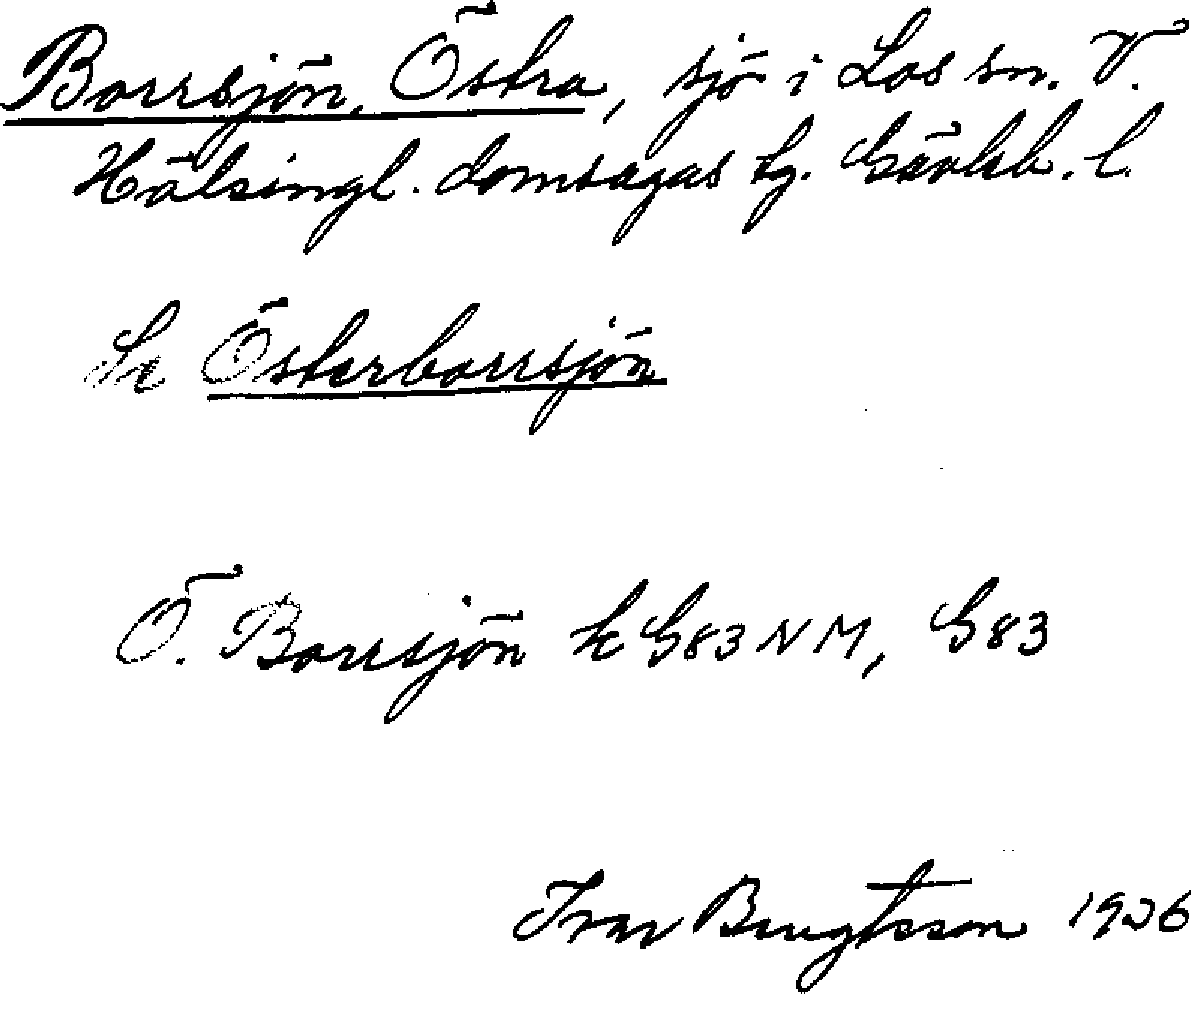 Borrsjön, Östra, sjö i Los sn. V.
Hälsingl. domsagas tg. Gävleb. l.
Se Österborrsjön
Ö. Borrsjön k G83 NM, G83
Ivar Bengtsson 1926